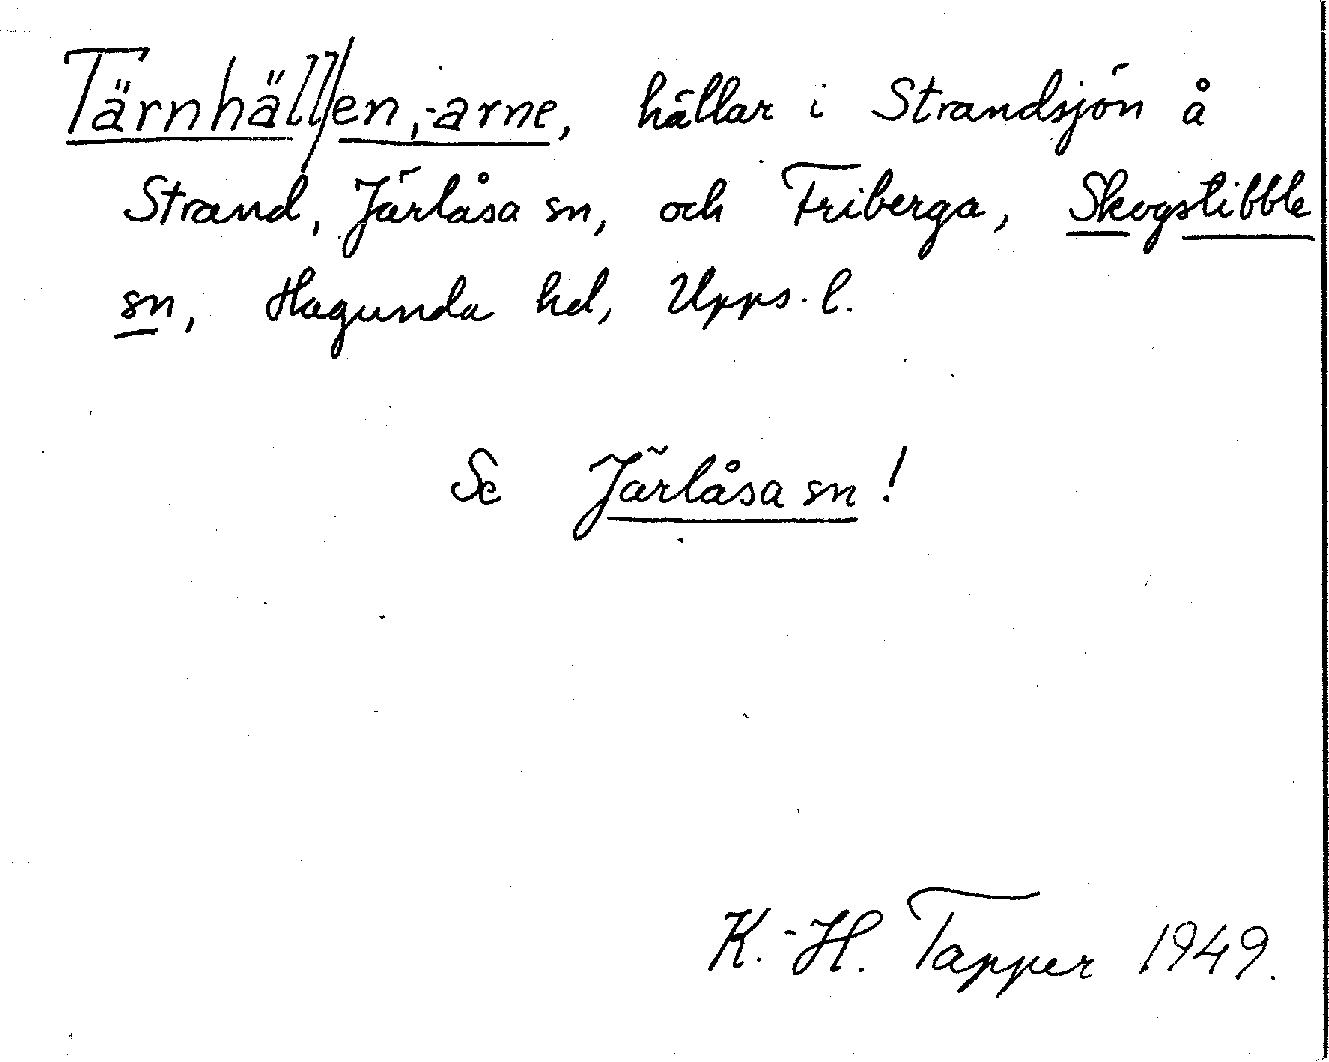 Tärnhäll/en, -arne, hällar i Strandsjön å
Strand, Järlåsa sn, och Friberga, Skogstibble
sn, Hagunda hd, Upps. l.
Se Järlåsa sn!
K.-H. Tapper 1949.